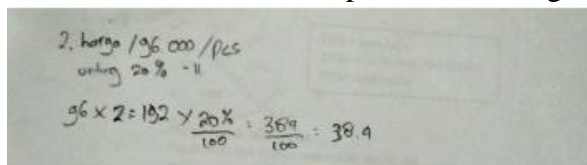 2. harga /96 000 /pcs
untung 20% - 11
96 x 2 = 192 x 20%/100 = 384/100 = 38.4